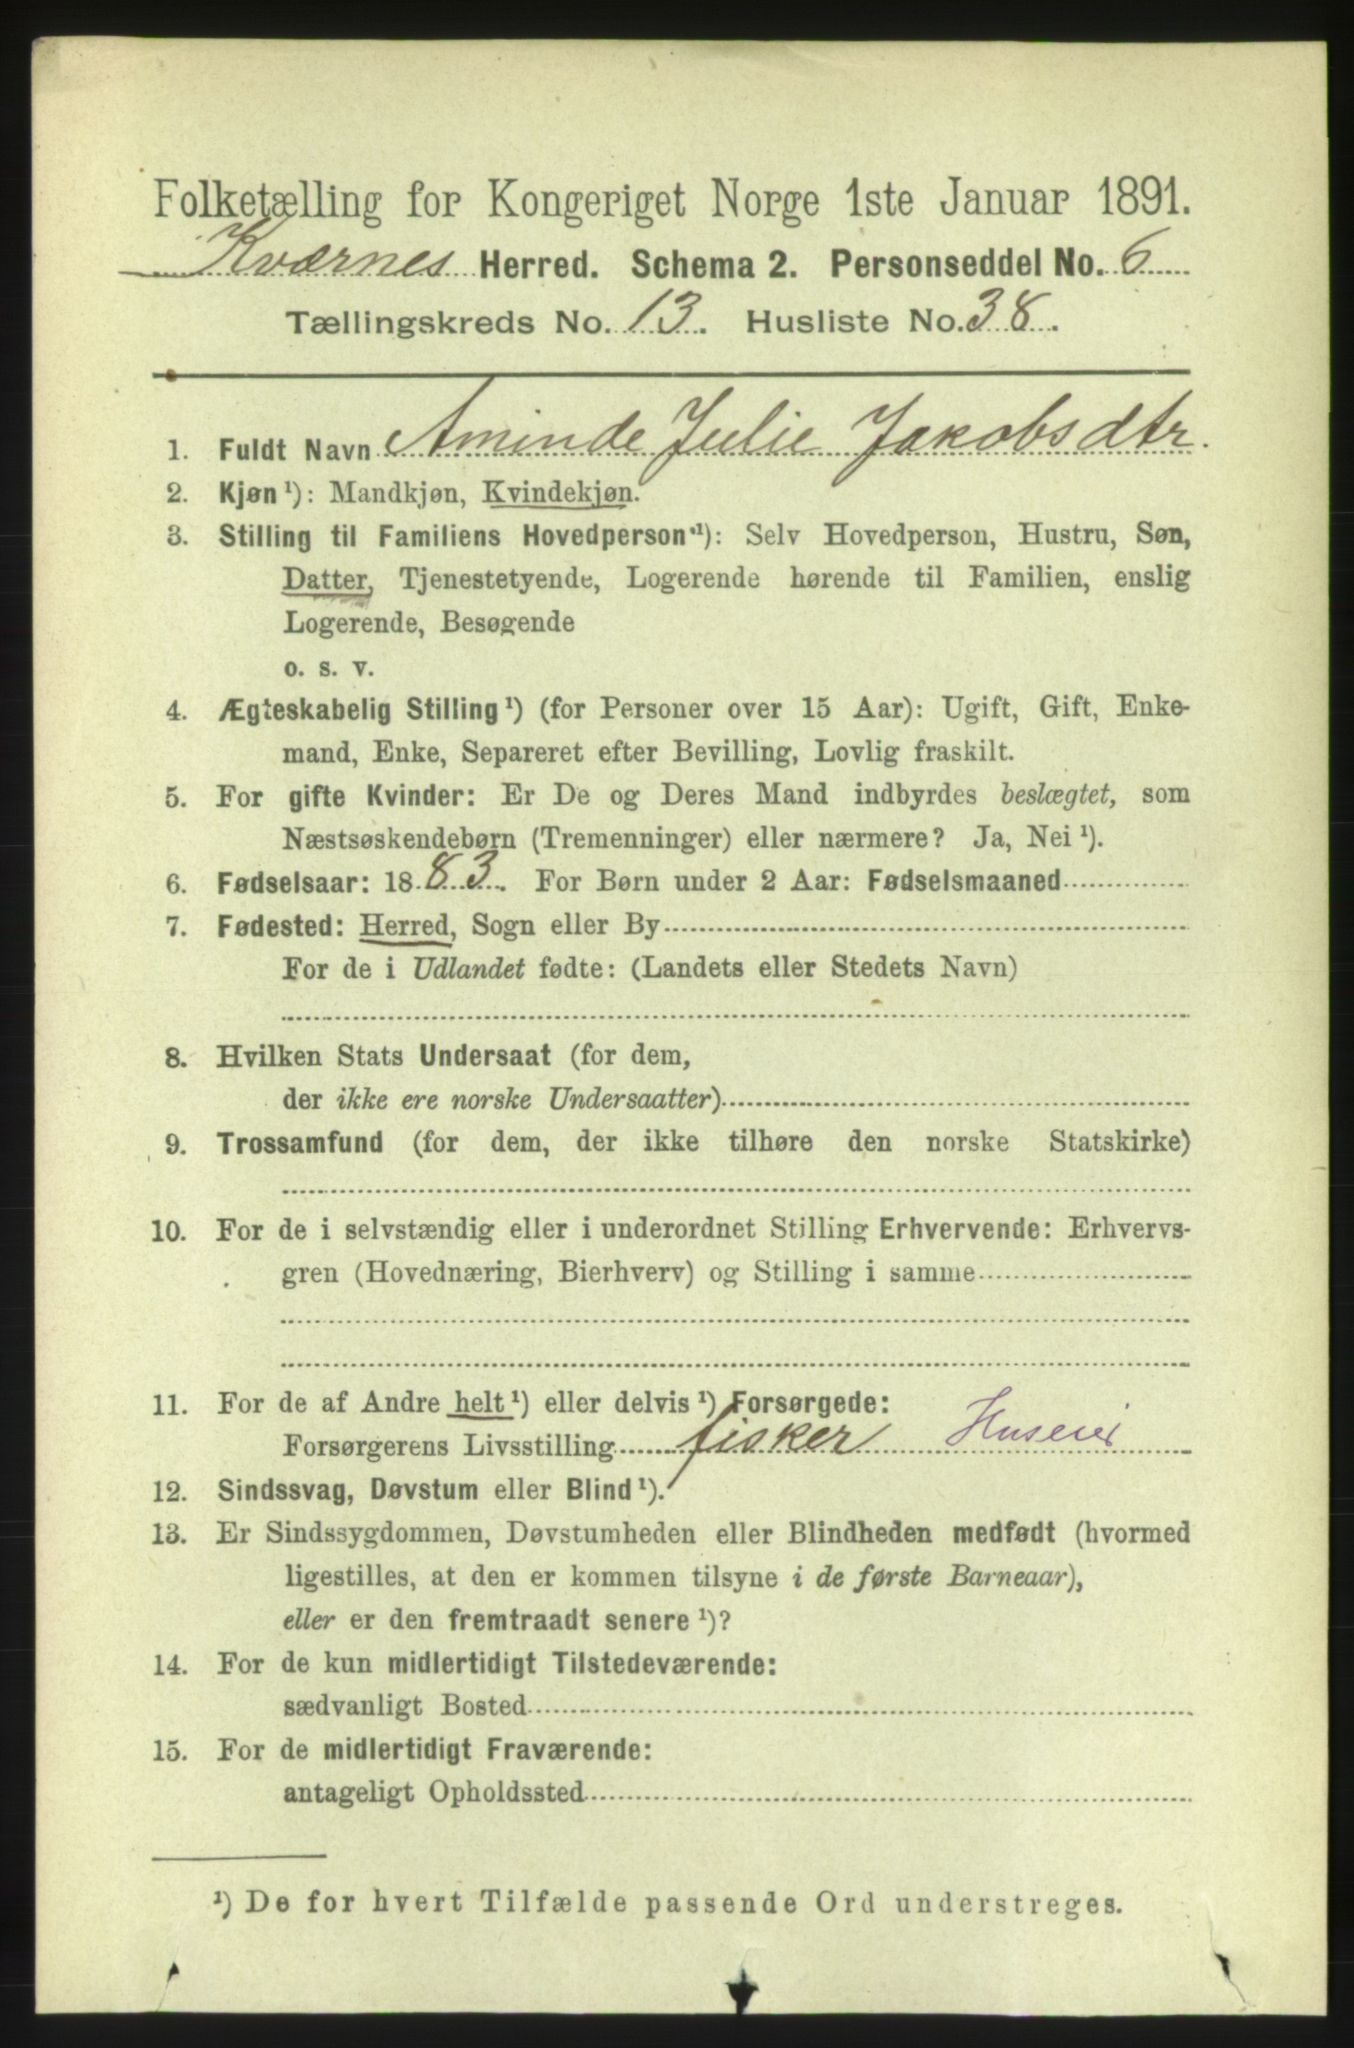 Folketælling for Kongeriget Norge 1ste Januar 1891.
Kværnes Herred. Schema 2. Personseddel No. 6
Tællingskreds No. 13. Husliste No. 38.
1. Fuldt Navn Aminde Julie Jakobsdtr.
2. Kjøn¹): Mandkjøn, Kvindekjøn.
3. Stilling til Familiens Hovedperson¹): Selv Hovedperson, Hustru, Søn,
Datter, Tjenestetyende, Logerende hørende til Familien, enslig
Logerende, Besøgende
o. s. v.
4. Ægteskabelig Stilling¹) (for Personer over 15 Aar): Ugift, Gift, Enke-
mand, Enke, Separeret efter Bevilling, Lovlig fraskilt.
5. For gifte Kvinder: Er De og Deres Mand indbyrdes beslægtet, som
Næstsøskendebørn (Tremenninger) eller nærmere? Ja, Nei¹).
6. Fødselsaar: 1883. For Børn under 2 Aar: Fødselsmaaned
7. Fødested: Herred, Sogn eller By
For de i Udlandet fødte: (Landets eller Stedets Navn)
8. Hvilken Stats Undersaat (for dem,
der ikke ere norske Undersaatter)
9. Trossamfund (for dem, der ikke tilhøre den norske Statskirke)
10. For de i selvstændig eller i underordnet Stilling Erhvervende: Erhvervs-
gren (Hovednæring, Bierhverv) og Stilling i samme
11. For de af Andre helt¹) eller delvis¹) Forsørgede:
Forsørgerens Livsstilling fisker Huseier
12. Sindssvag, Døvstum eller Blind¹).
13. Er Sindssygdommen, Døvstumheden eller Blindheden medfødt (hvormed
ligestilles, at den er kommen tilsyne i de første Barneaar),
eller er den fremtraadt senere¹)?
14. For de kun midlertidigt Tilstedeværende:
sædvanligt Bosted
15. For de midlertidigt Fraværende:
antageligt Opholdssted
¹) De for hvert Tilfælde passende Ord understreges.